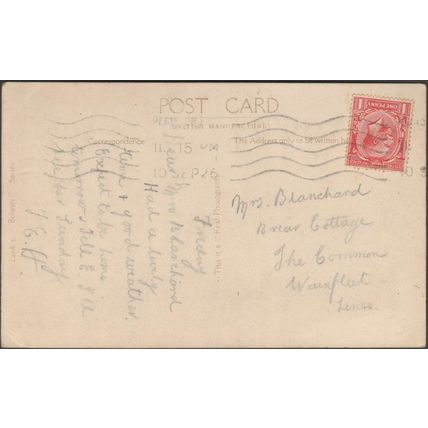 POST CARD
BRITISH MANUFACTURE
Correspondence
The Address only to be written
11.15 PM
10 SEP 26
ONE PENNY
Friday
Dear Mrs Blanchard
Had a lovely
time & good weather.
Expect to be home
tomorrow. Tell E. I'll
see her Sunday
Mrs. Blanchard
Briar Cottage
The Common
Wainfleet
Lincs.
This is a Real Photograph